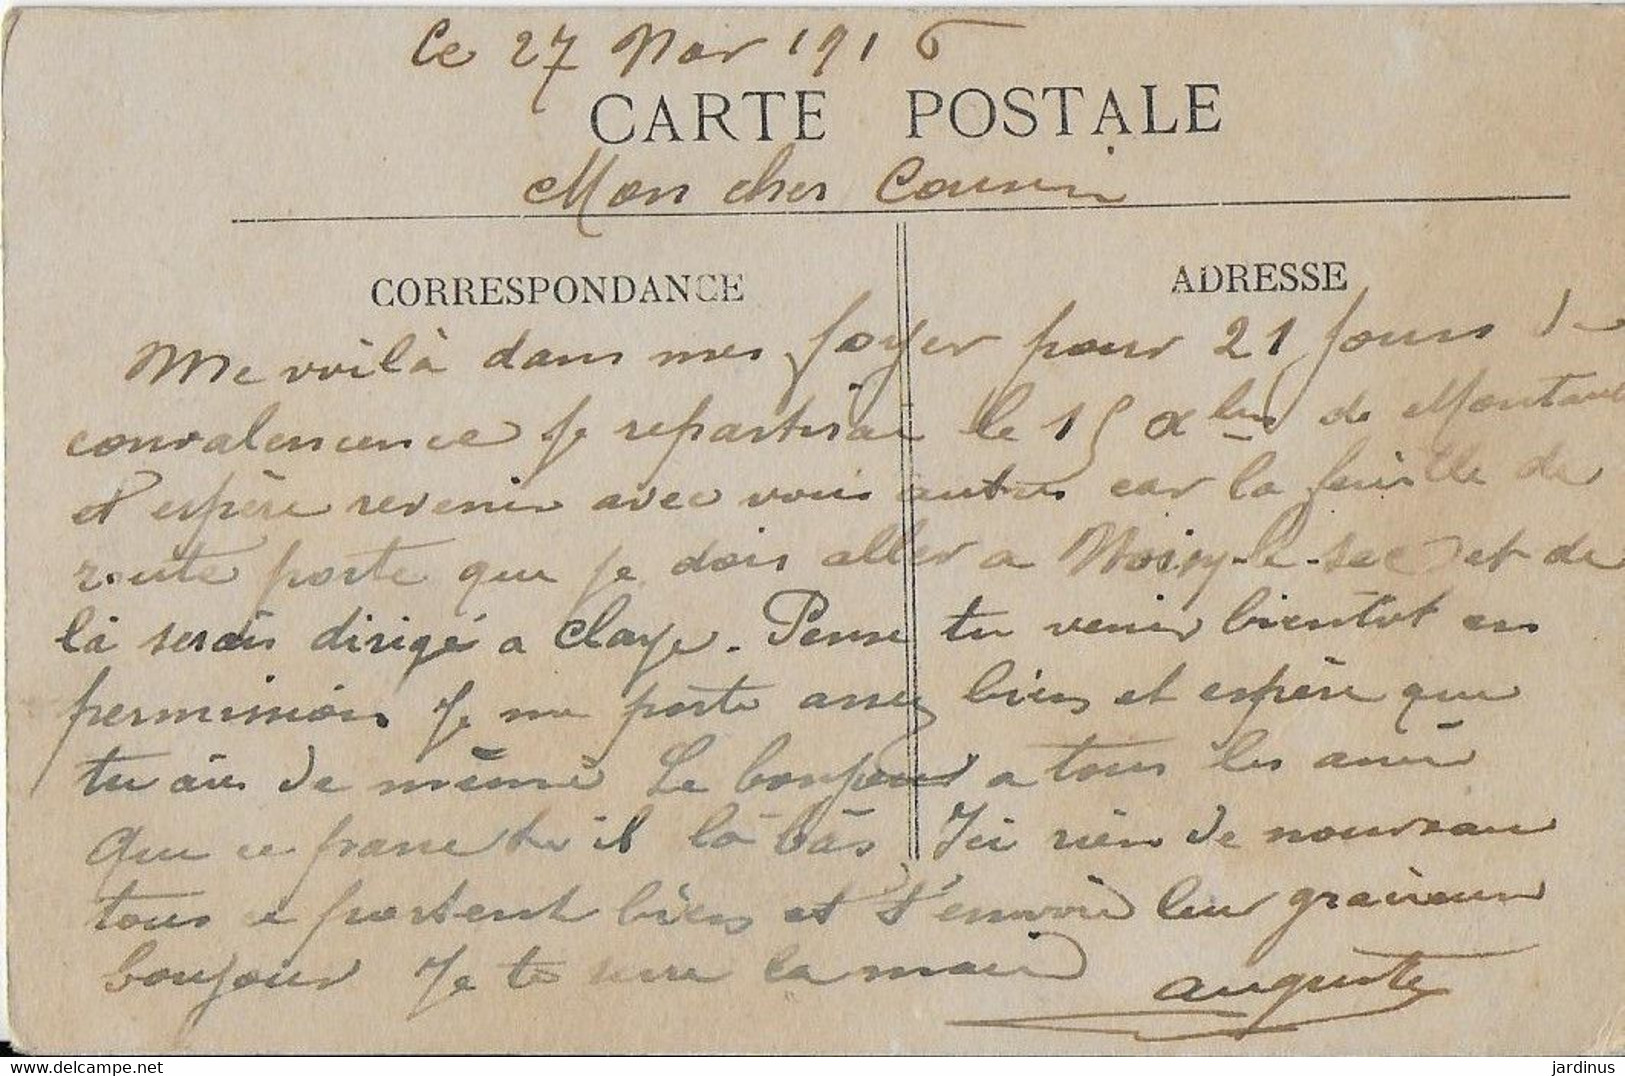 Le 27 Nov 1916
CARTE POSTALE
Mon cher Cousin
CORRESPONDANCE
ADRESSE
Me voilà dans mes foyer pour 21 jours de
convalensence Je repartirai le 15 Xbre de Montaut
et espère revenir avec vous autres car la feuille de
route porte que je dois aller a Noisy-le-sec et de
là serais dirigé a Claye. Pense tu venir bientot en
permission Je me porte assez bien et espère que
tu ais de même Le bonjour a tous les amis
Que ce passe til là bàs Ici rien de nouveau
tous ce portent bien et t'envoie leur gracieux
bonjour Je te serre la main
Auguste
jardinus